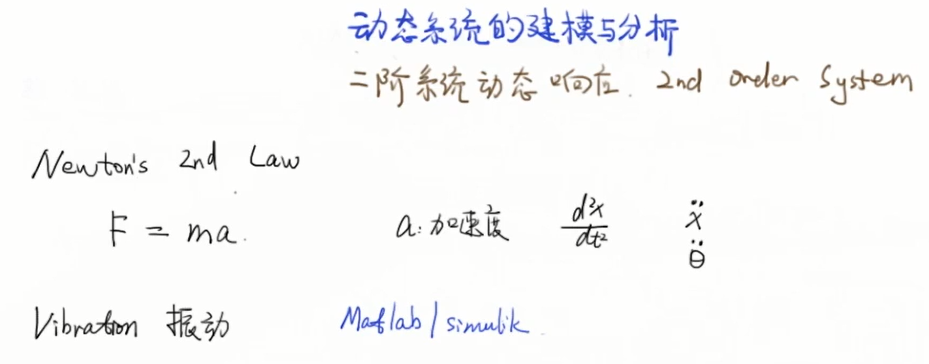 动态系统的建模与分析
二阶系统动态响应. 2nd order System
Newton's 2nd Law
F = ma. a: 加速度 d²x/dt² ẍ
θ̈
Vibration 振动 Matlab/simulik